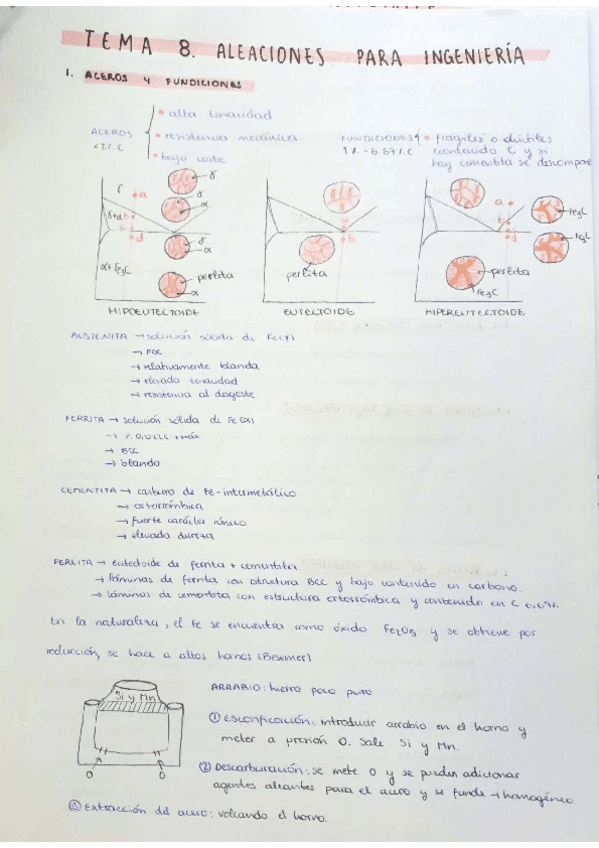 TEMA 8. ALEACIONES PARA INGENIERÍA
1. ACEROS Y FUNDICIONES
• alta tenacidad
ACEROS • resistencia mecánica
<2% C
• bajo coste
FUNDICIONES • frágiles o dúctiles
contenido C y Si
hay cementita se descompone
γ • a γ
γ α
γ+α b
c
d γ
α
α+Fe3C perlita
α
HIPOEUTECTOIDE
a
b
perlita
EUTECTOIDE
a
Fe3C
Fe3C
d
perlita
Fe3C
HIPEREUTECTOIDE
AUSTENITA → solución sólida de Fe(γ)
→ FCC
→ relativamente blanda
→ elevada tenacidad
→ resistencia al desgaste
FERRITA → solución sólida de Fe(α)
→ % 0,02% C máx
→ BCC
→ blanda
CEMENTITA → carburo de Fe-intermetálico
→ ortorrómbica
→ fuerte carácter iónico
→ elevada dureza
PERLITA → eutectoide de ferrita + cementita.
→ láminas de ferrita con structura BCC y bajo contenido en carbono.
→ láminas de cementita con estructura ortorrómbica y contenido en C 6,67%.
En la naturaleza, el Fe se encuentra como óxido Fe2O3 y se obtiene por
reducción, se hace a altos hornos (Bessemer)
Si y Mn
O O
ARRABIO: hierro poco puro
① Escorificación: introducir arrabio en el horno y
meter a presión O. Sale Si y Mn.
② Descarburación: se mete O y se pueden adicionar
agentes aleantes para el acero y se funde → homogéneo
③ Extracción del acero: volcando el horno.